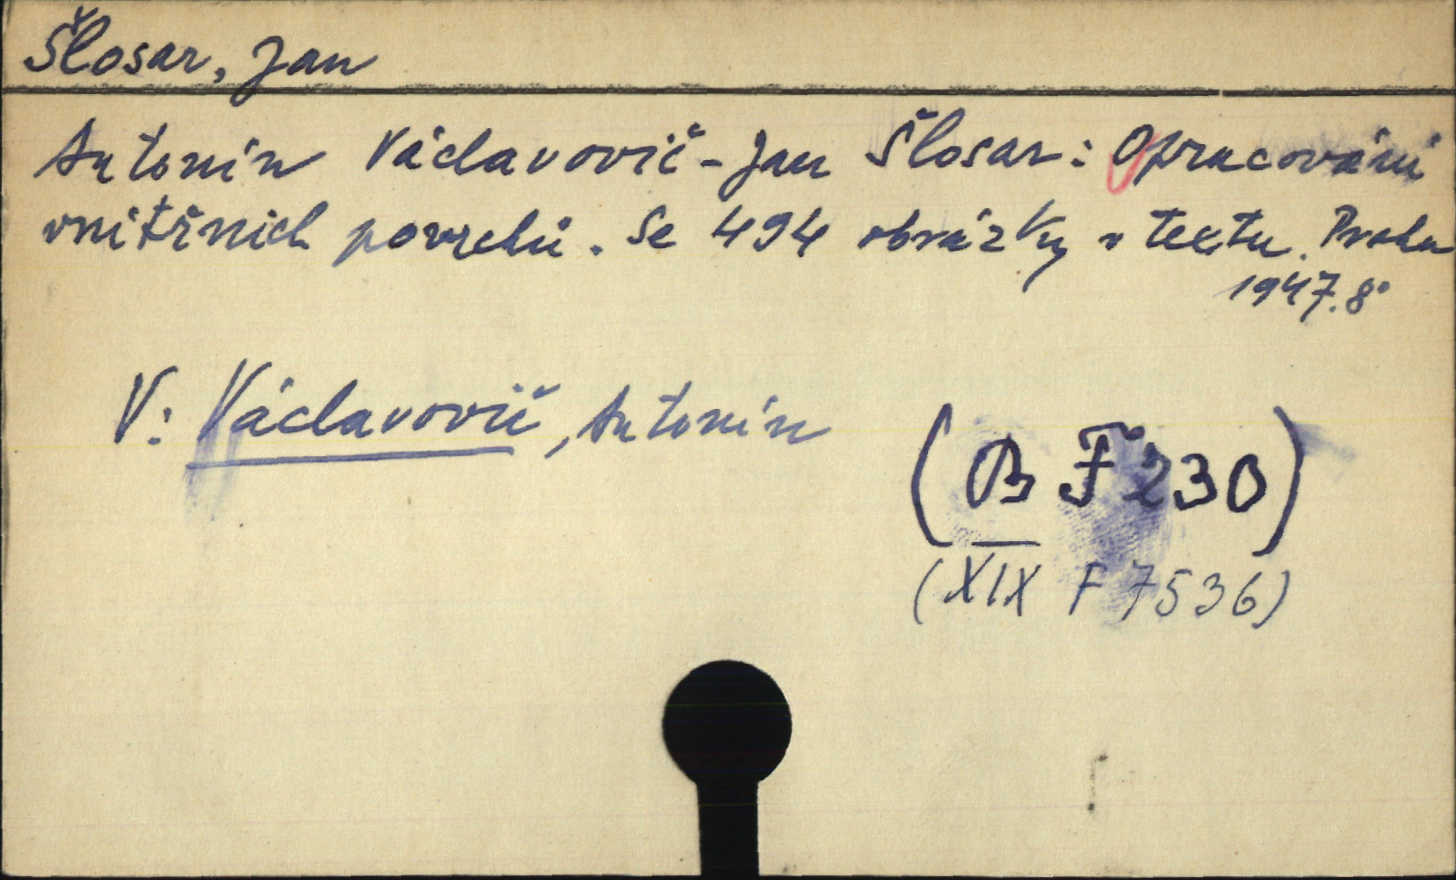 Šlosar, Jan
Antonín Václavovič-Jan Šlosar: Opracování
vnitřních povrchů. Se 494 obrázky v textu. Praha
1947.8°
V: Václavovič, Antonín
(B F 230)
(XIX F 7536)